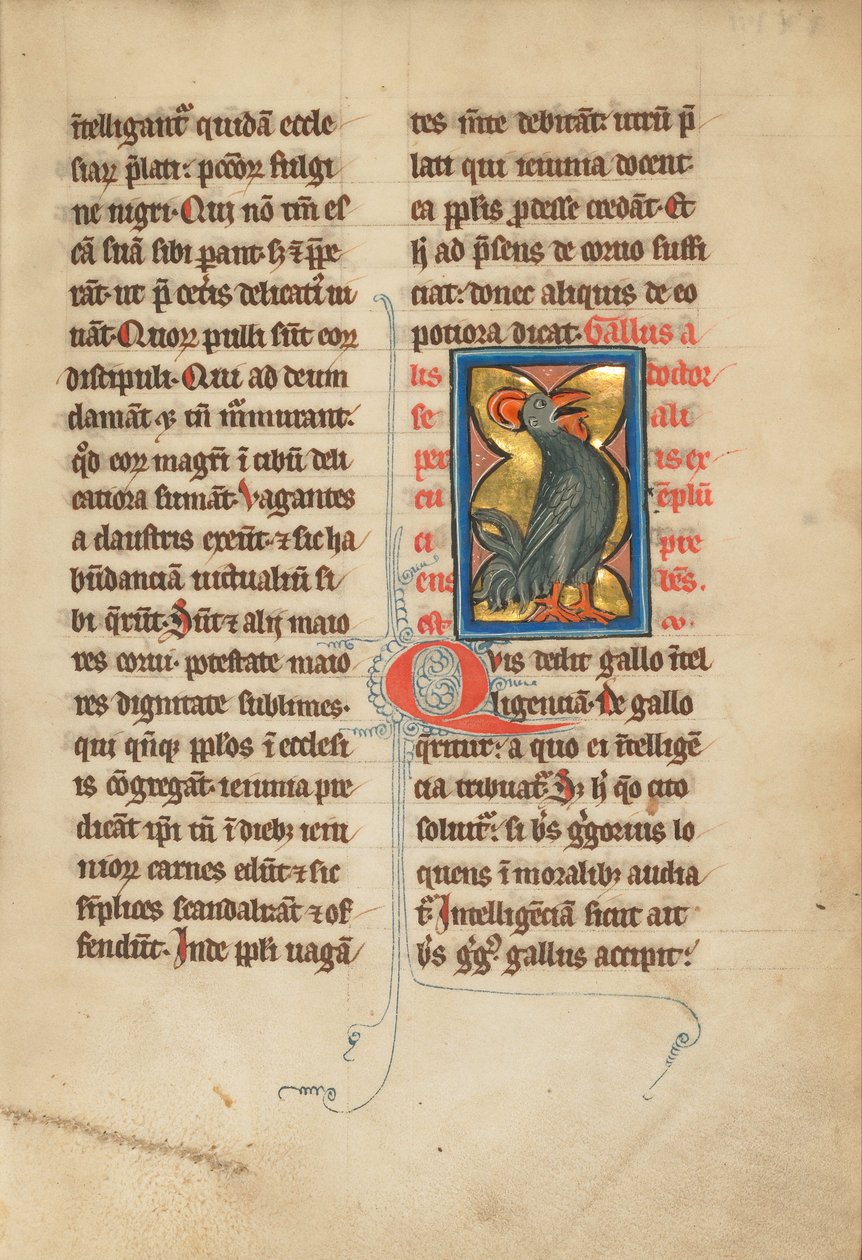 ĩtelligant᷑ quidã eccle
siaꝝ p̃lati: pcc̃oꝝ fulgi
ne nigri· Qui nõ tm̃ es
cã suã sibi ꝑant· sꝫ ⁊ p̃pe
rãt· ut p̃ cet̃is delicati᷑ ui
uãt· Quoꝝ pulli sũt eoꝝ
discipuli· Qui ad deum
clamãt ⁊ tñ murmurant:
qd̃ eoꝝ magr̃i ĩ cibũ deli
catiora sumãt· Vagantes
a claustris exeũt· ⁊ sic ha
bũdanciã uictualiũ si
bi q̃rũt· Sũt ⁊ alij maio
res corui· potestate maio
res dignitate sublimes·
qui qñqꝫ pp̃los ĩ ecclesi
is cõgregãt· ieiunia pre
dicãt ip̃i tñ ĩ diebꝫ ieiu
nioꝝ carnes edũt ⁊ sic
sĩplices scandalizãt ⁊ of
fendũt· Inde pp̃li uagã
tes m̃te debitãt: utrũ p̃
lati qui ieiunia docent
ea pp̃lis ꝓdesse credãt· Et
h̃ ad p̃sens de coruo suffi
ciat: donec aliquis de eo
potiora dicat· Gallus a
lis doctor
se ali
per is ex
cu ẽplũ
ci pre
ens bẽs.
est·
Quis dedit gallo ĩtel
ligenciã· De gallo
q̃ritur: a quo ei ĩtelligẽ
cia tribuat᷑· Sꝫ h̃ q̃o cito
soluit᷑: si b̃s g̃gorius lo
quens ĩ moralibꝫ audia
t᷑· Intelligẽciã sicut ait
b̃s g̃g᷒ gallus accipit: